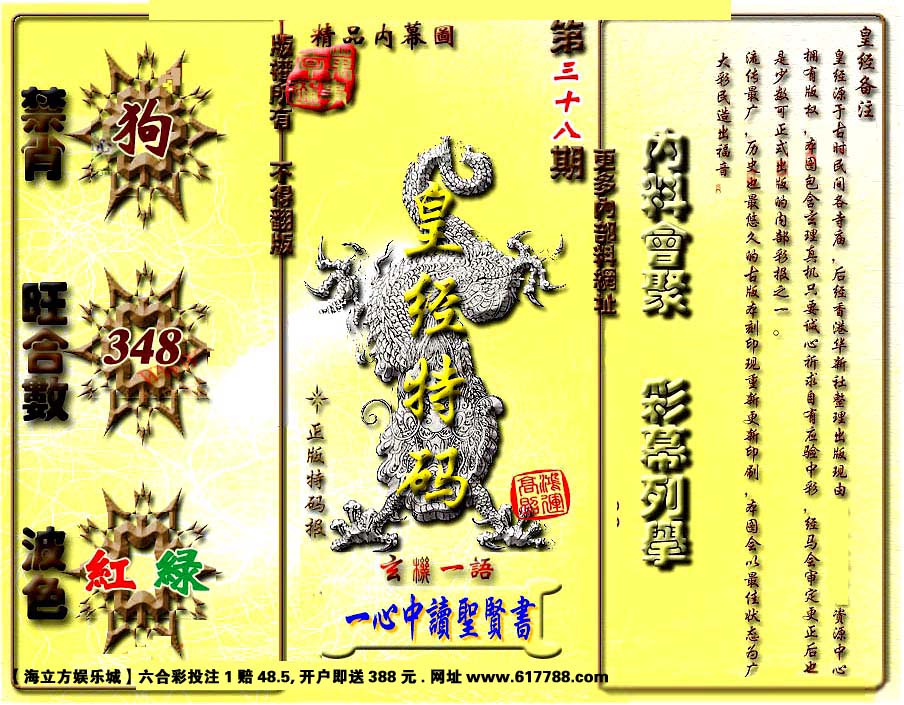 皇经备注
皇经源于古时民间各寺庙，后经香港华新社整理出版现由 资源中心
拥有版权，本图包含玄理真机只要诚心祈求自有应验中彩，经马会审定更正后也
是少数可正式出版的内部彩报之一。
流传最广，历史也最悠久的古版本刻印现重新更新印刷，本图会以最佳状态为广
大彩民造出福音
内料會聚 彩幕列舉
更多內部料網址
第三十八期
精品内幕圖
皇经特码
正版特码报
鴻運高照
玄機一語
一心中讀聖賢書
版權所有 不得翻版
禁肖
狗
旺合數
348
波色
紅 綠
【海立方娱乐城】六合彩投注 1 赔 48.5, 开户即送 388 元 . 网址 www.617788.com